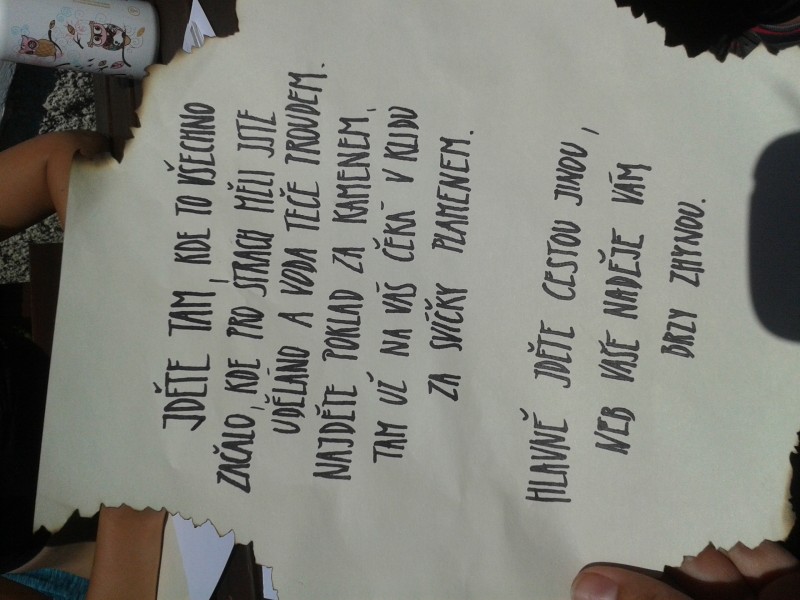 JDĚTE TAM, KDE TO VŠECHNO
ZAČALO, KDE PRO STRACH MĚLI JSTE
UDĚLÁNO A VODA TEČE PROUDEM.
NAJDĚTE POKLAD ZA KAMENEM,
TAM UŽ NA VÁS ČEKÁ V KLIDU
ZA SVÍČKY PLAMENEM.
HLAVNĚ JDĚTE CESTOU JINOU,
NEB VAŠE NADĚJE VÁM
BRZY ZHYNOU.